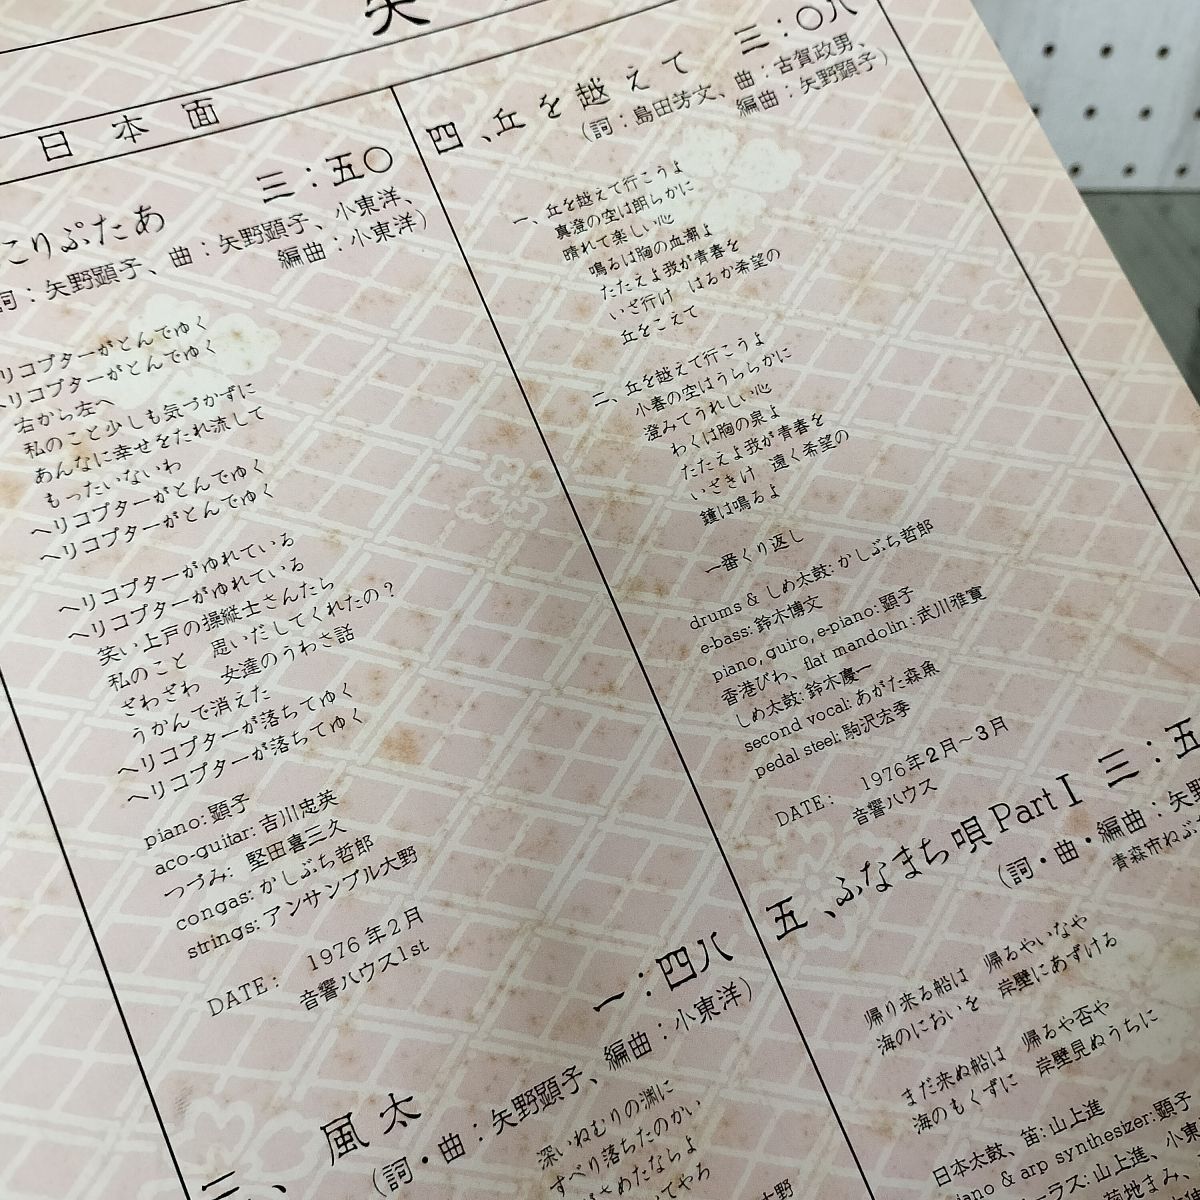 日本面
こりぷたあ
三:五〇
詞:矢野顕子、曲:矢野顕子、小東洋、
編曲:小東洋)
リコプターがとんでゆく
ヘリコプターがとんでゆく
右から左へ
私のこと少しも気づかずに
あんなに幸せをたれ流して
もったいないわ
ヘリコプターがとんでゆく
ヘリコプターがとんでゆく
ヘリコプターがゆれている
ヘリコプターがゆれている
笑い上戸の操縦士さんたら
私のこと 思いだしてくれたの?
ざわざわ 女達のうわさ話
うかんで消えた
ヘリコプターが落ちてゆく
ヘリコプターが落ちてゆく
piano:顕子
aco-guitar:吉川忠英
つづみ:堅田喜三久
congas:かしぶち哲郎
strings:アンサンブル大野
DATE: 1976年2月
音響ハウス1st
一:四八
二、風太
(詞・曲:矢野顕子、編曲:小東洋)
深いねむりの渕に
すべり落ちたのかい
さめたならよ
てやろ
四、丘を越えて 三:〇八
(詞:島田芳文、曲:古賀政男、
編曲:矢野顕子)
一、丘を越えて行こうよ
真澄の空は朗らかに
晴れて楽しい心
鳴るは胸の血潮よ
たたえよ我が青春を
いざ行け はるか希望の
丘をこえて
二、丘を越えて行こうよ
小春の空はうららかに
澄みてうれしい心
わくは胸の泉よ
たたえよ我が青春を
いざきけ 遠く希望の
鐘は鳴るよ
一番くり返し
drums & しめ太鼓:かしぶち哲郎
e-bass:鈴木博文
piano, guiro, e-piano:顕子
香港びわ、flat mandolin:武川雅寛
しめ太鼓:鈴木慶一
second vocal:あがた森魚
pedal steel:駒沢宏季
DATE: 1976年2月〜3月
音響ハウス
五、ふなまち唄 Part I 三:五
(詞・曲・編曲:矢野
青森市ねぶ
帰り来る船は 帰るやいなや
海のにおいを 岸壁にあずける
まだ来ぬ船は 帰るや否や
海のもくずに 岸壁見ぬうちに
日本太鼓、笛:山上進
iano & arp synthesizer:顕子
ラス:山上進、小東
菊地まみ、